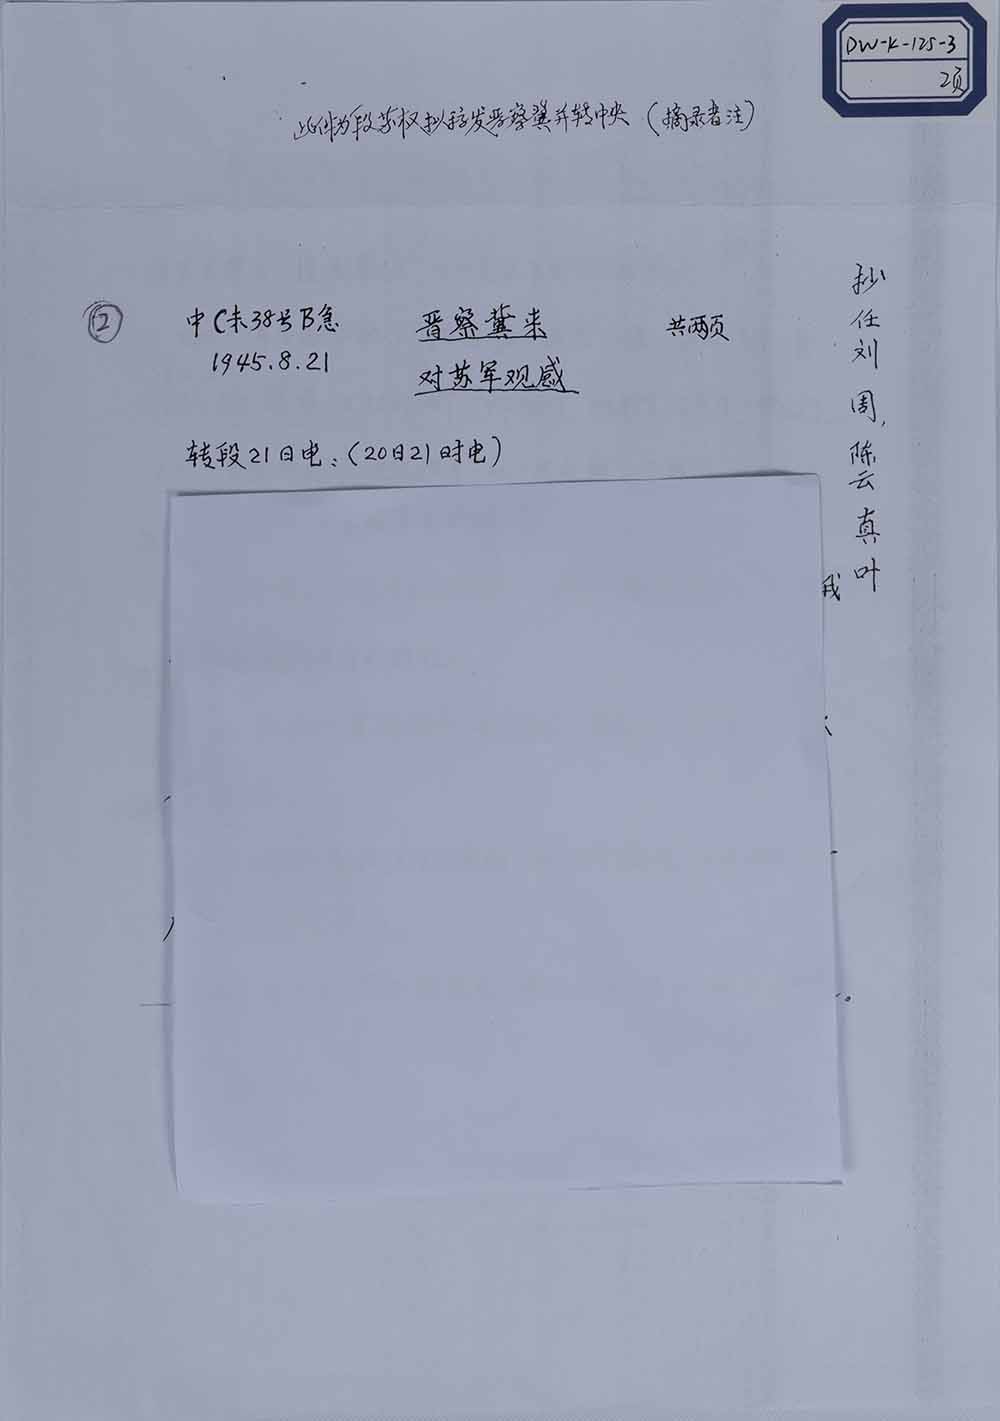 DW-K-125-3
2页
此件为段苏权拟稿发晋察冀并转中央（摘录者注）
② 中C未38号B急 晋察冀来 共两页
1945.8.21 对苏军观感
转段21日电：（20日21时电）
抄任刘周，陈云真叶
我